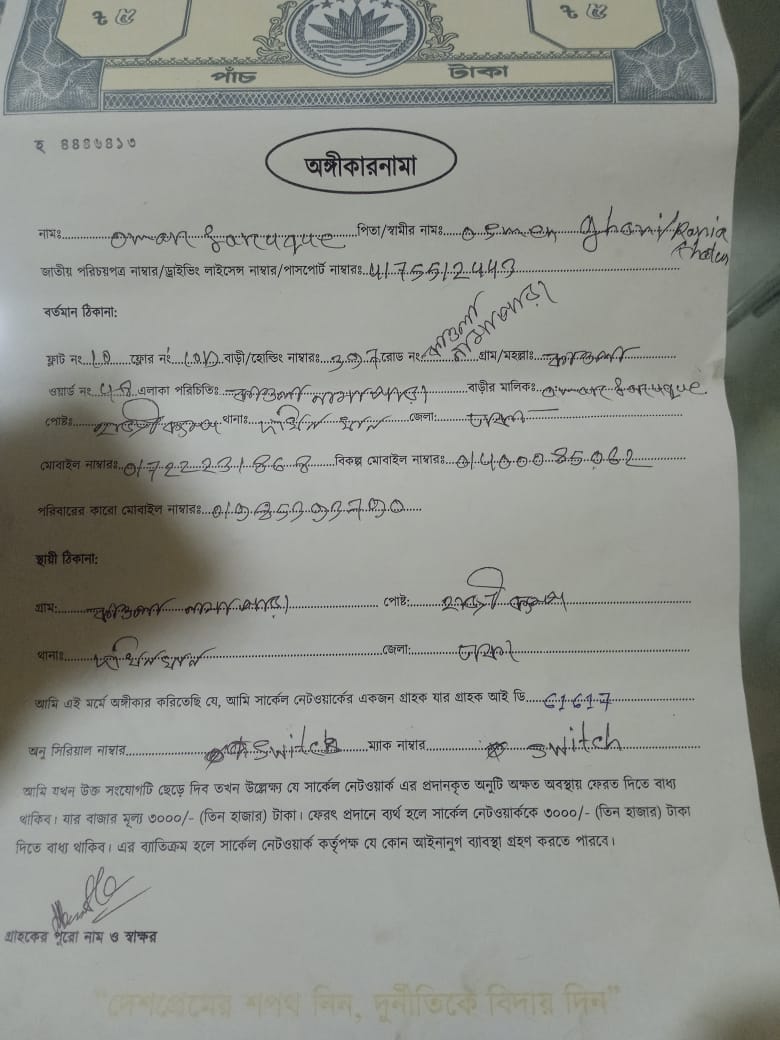 ৳ ৫ ৳ ৫
পাঁচ টাকা
হ ৪৪৪৬৪১৩
অঙ্গীকারনামা
নামঃ omar faruque পিতা/স্বামীর নামঃ osman ghani/Rania Khatun
জাতীয় পরিচয়পত্র নাম্বার/ড্রাইভিং লাইসেন্স নাম্বার/পাসপোর্ট নাম্বারঃ 4175512443
বর্তমান ঠিকানা:
ফ্লাট নং ফ্লোর নং বাড়ী/হোল্ডিং নাম্বারঃ রোড নং কাওলা নামাপাড়া গ্রাম/মহল্লাঃ কাওলা
ওয়ার্ড নং এলাকা পরিচিতিঃ কাওলা নামাপাড়া বাড়ীর মালিকঃ omar faruque
পোষ্টঃ থানাঃ দক্ষিনখান জেলা: ঢাকা
মোবাইল নাম্বারঃ 01722231868 বিকল্প মোবাইল নাম্বারঃ 01400085062
পরিবারের কারো মোবাইল নাম্বারঃ
স্থায়ী ঠিকানা:
গ্রাম: কাওলা নামাপাড়া পোষ্ট:
থানাঃ দক্ষিনখান জেলা: ঢাকা
আমি এই মর্মে অঙ্গীকার করিতেছি যে, আমি সার্কেল নেটওয়ার্কের একজন গ্রাহক যার গ্রাহক আই ডি 61617
অনু সিরিয়াল নাম্বার switch ম্যাক নাম্বার switch
আমি যখন উক্ত সংযোগটি ছেড়ে দিব তখন উল্লেখ্য যে সার্কেল নেটওয়ার্ক এর প্রদানকৃত অনুটি অক্ষত অবস্থায় ফেরত দিতে বাধ্য
থাকিব। যার বাজার মূল্য ৩০০০/- (তিন হাজার) টাকা। ফেরৎ প্রদানে ব্যর্থ হলে সার্কেল নেটওয়ার্ককে ৩০০০/- (তিন হাজার) টাকা
দিতে বাধ্য থাকিব। এর ব্যতিক্রম হলে সার্কেল নেটওয়ার্ক কর্তৃপক্ষ যে কোন আইনানুগ ব্যাবস্থা গ্রহণ করতে পারবে।
গ্রাহকের পুরো নাম ও স্বাক্ষর
"দেশপ্রেমের শপথ নিন, দুর্নীতিকে বিদায় দিন"